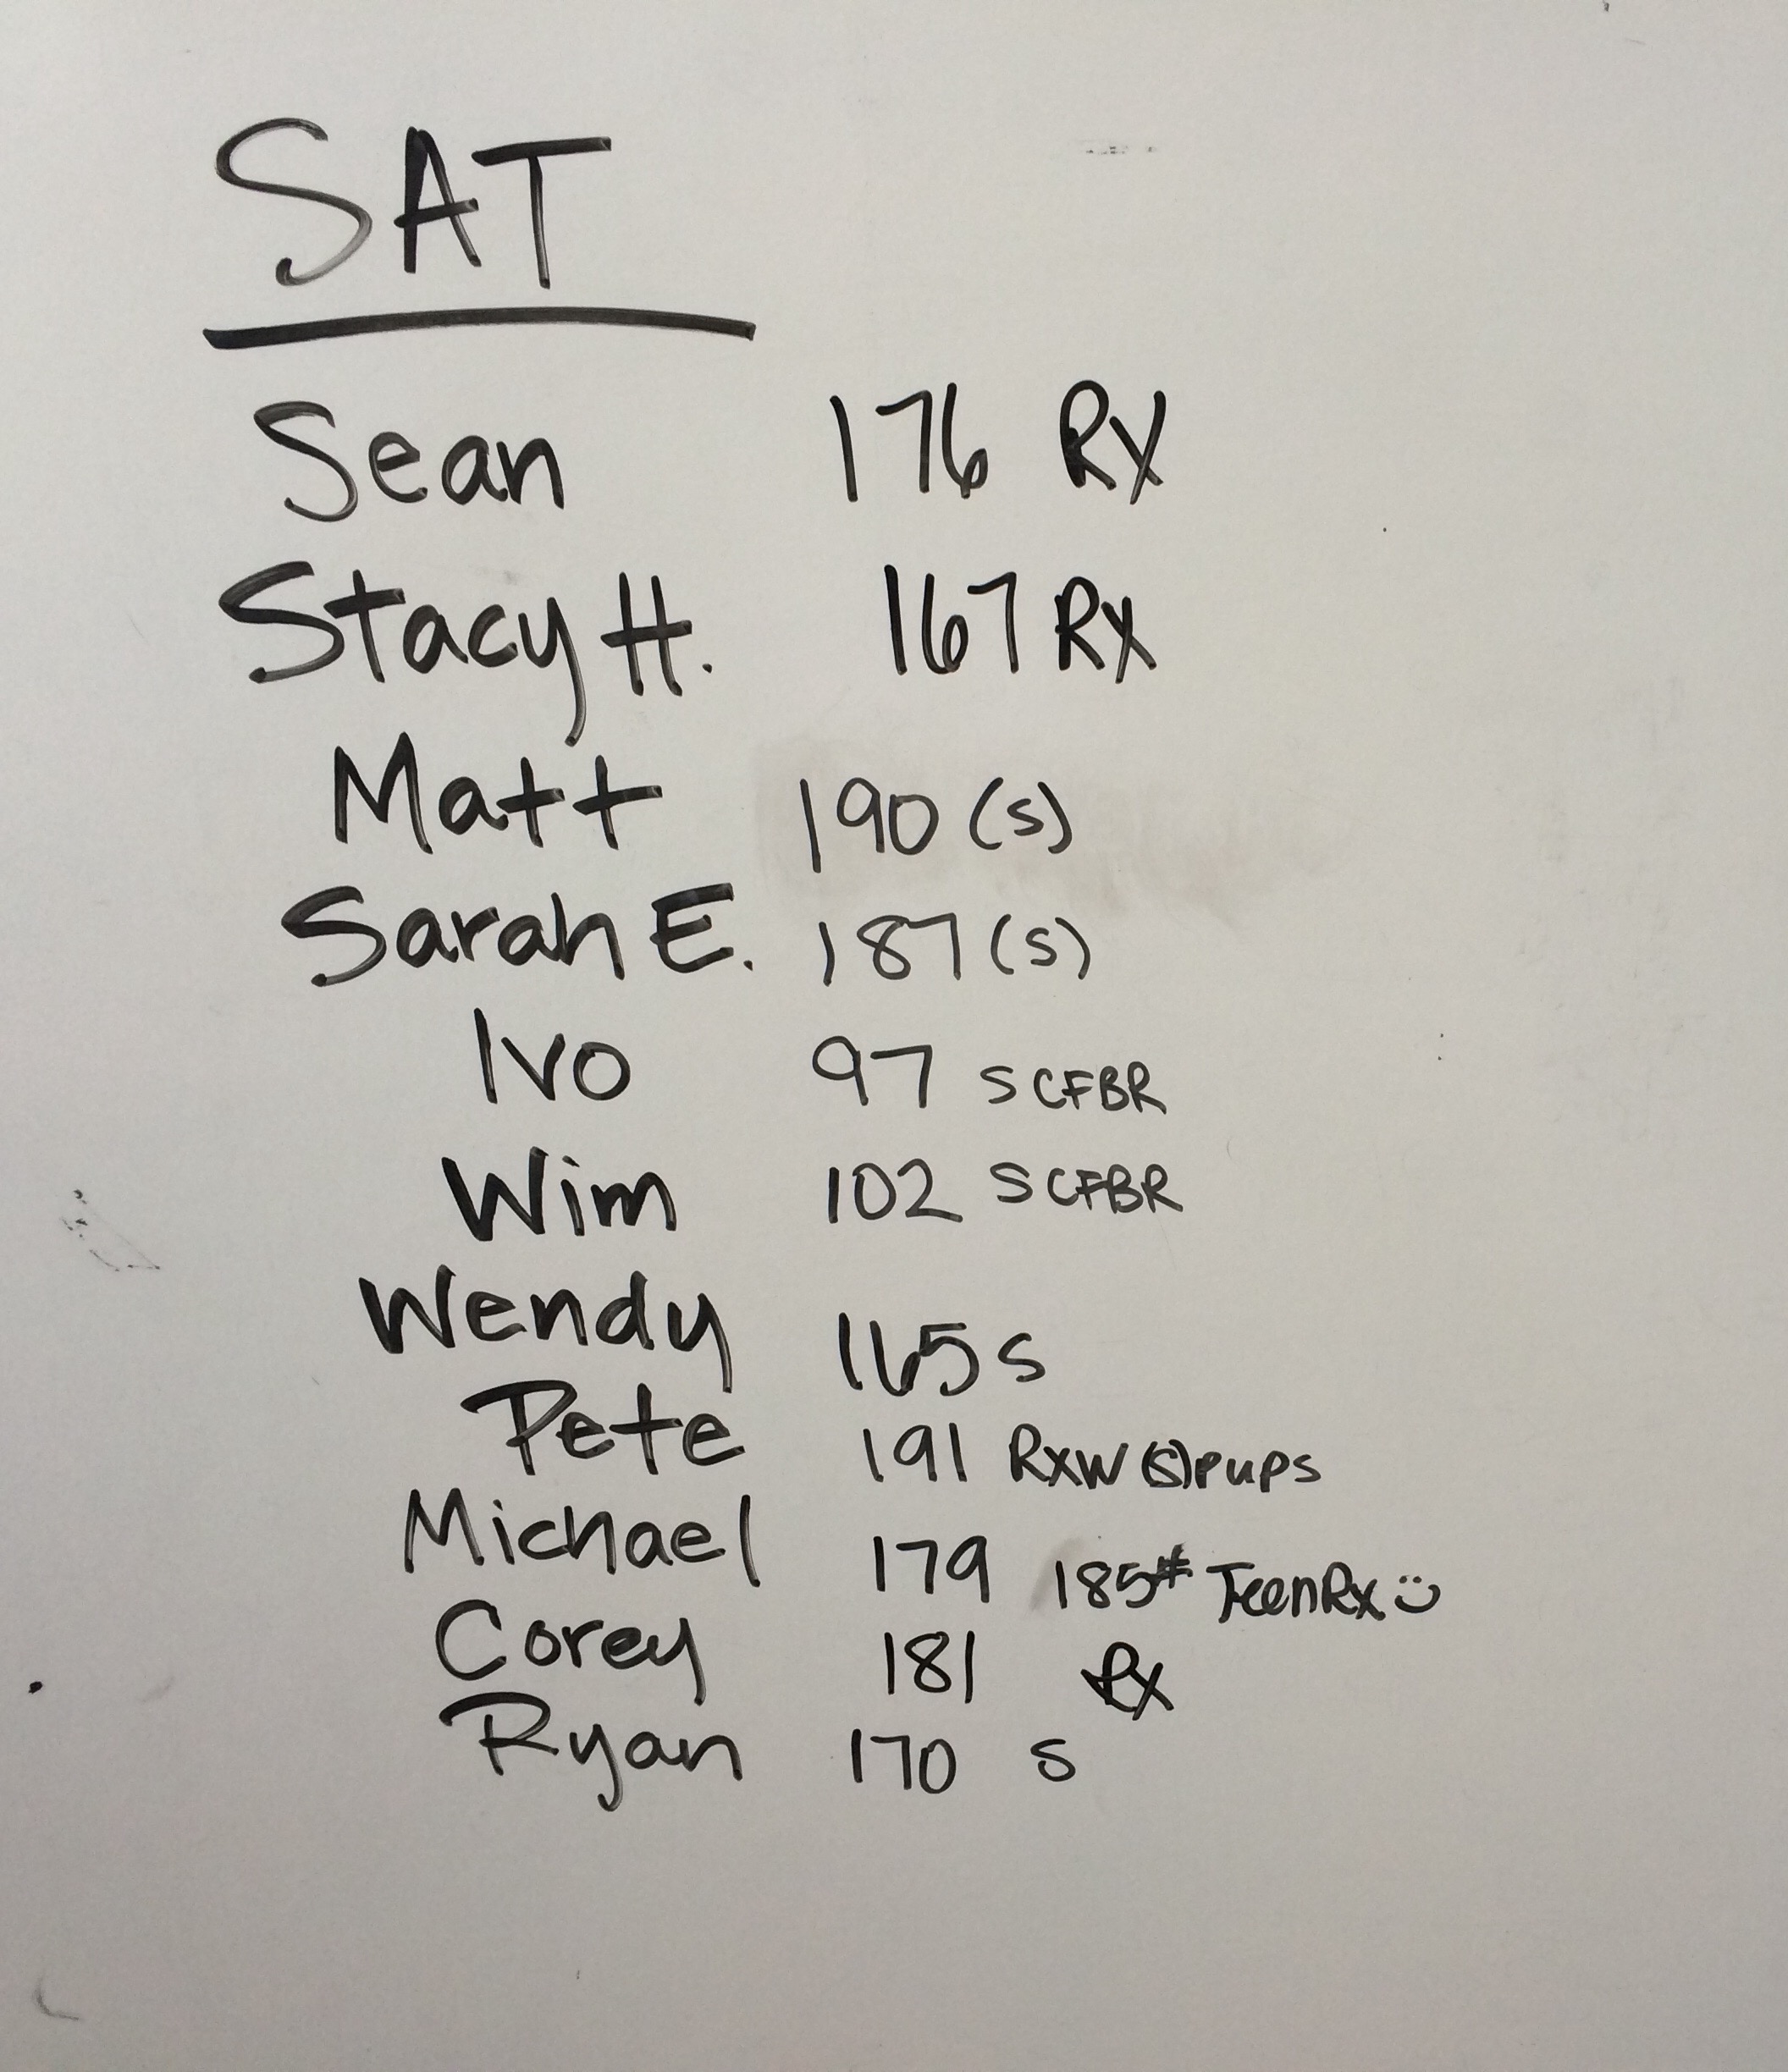 SAT
Sean 176 RX
Stacy H. 167 RX
Matt 190 (s)
Sarah E. 187 (s)
Ivo 97 S CFBR
Wim 102 S CFBR
Wendy 165 s
Pete 191 RxW (s) PUPS
Michael 179 185# TeenRx :)
Corey 181 Rx
Ryan 170 s